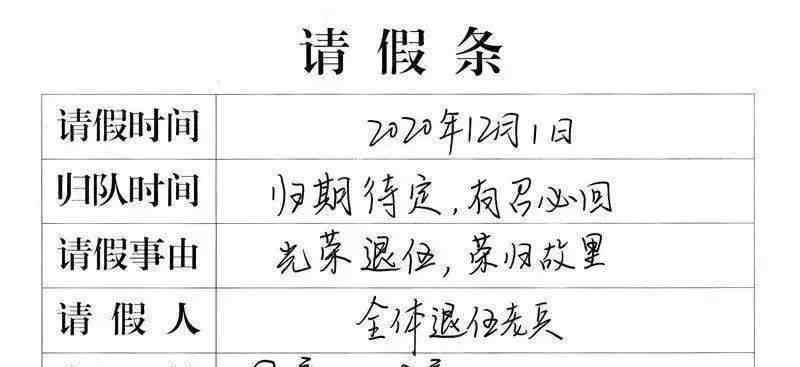 请假条
请假时间 2020年12月1日
归队时间 归期待定,有召必回
请假事由 光荣退伍,荣归故里
请假人 全体退伍老兵